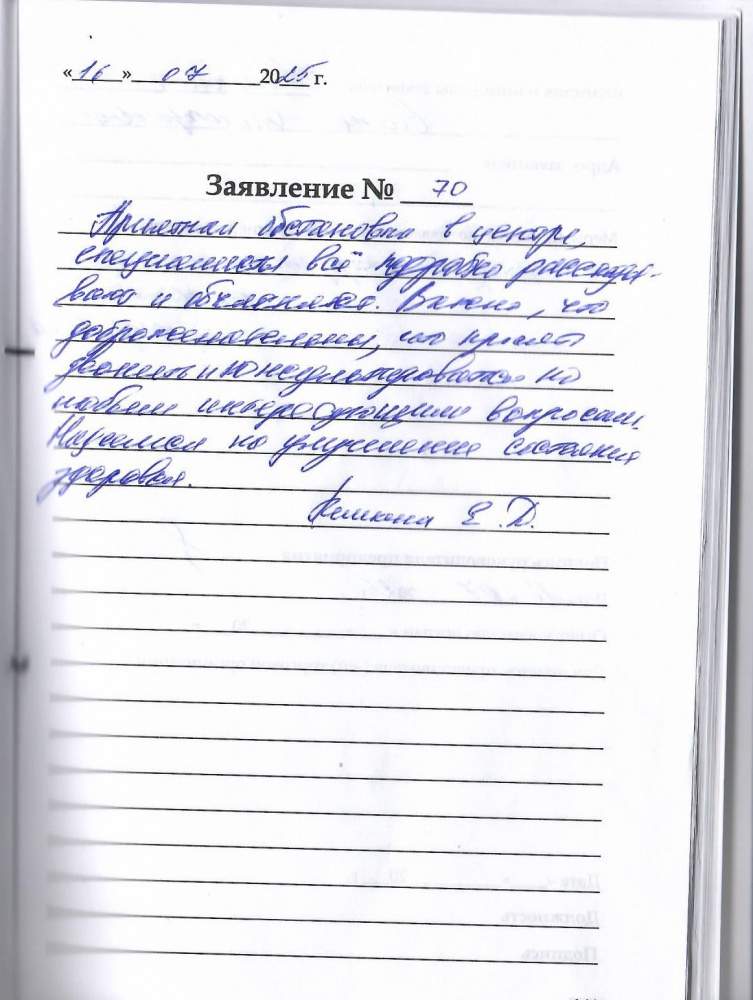 «16» 07 2025 г.
Заявление № 70
Приятная обстановка в центре,
специалисты всё подробно рассказы-
вают и объясняют. Важно, что
доброжелательны, что просят
звонить и консультироваться по
любым интересующим вопросам.
Надеемся на улучшение состояния
здоровья.
Е.Д.